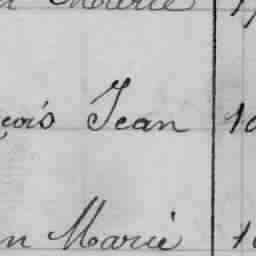 çois Jean 10
n Marie 1